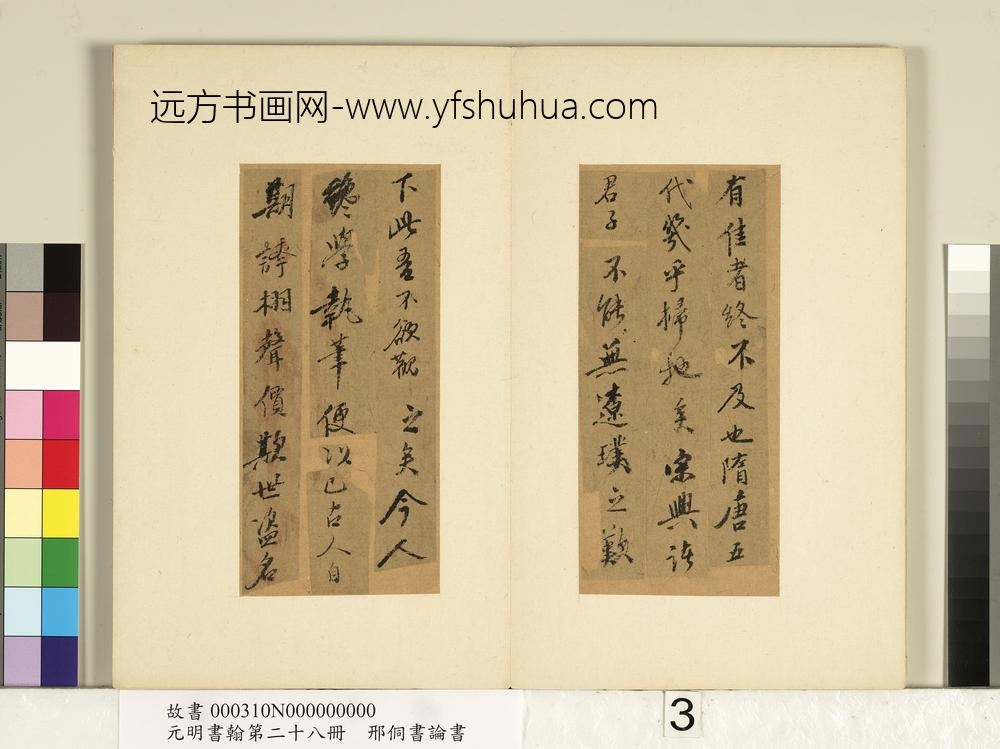 远方书画网-www.yfshuhua.com
有佳者終不及也隋唐五
代幾乎掃地矣宋興諸
君子不能無遼璞之歎
下此吾不欲觀之矣今人
纔學執筆便以已古人自
期誇栩聲價欺世盜名
故書 000310N000000000
元明書翰第二十八冊 邢侗書論書
3